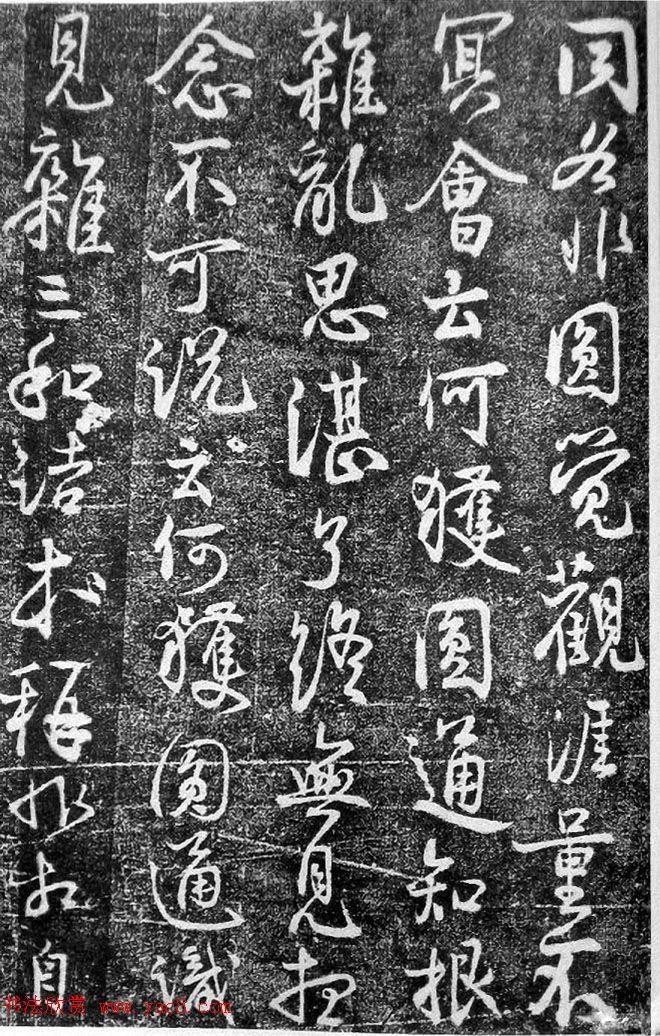 同各非圓覺觀涯量不
冥會云何獲圓通知根
雜亂思湛了終無見想
念不可說云何獲圓通識
見雜三和詰本稱非相自
书法欣赏 www.yac8.com